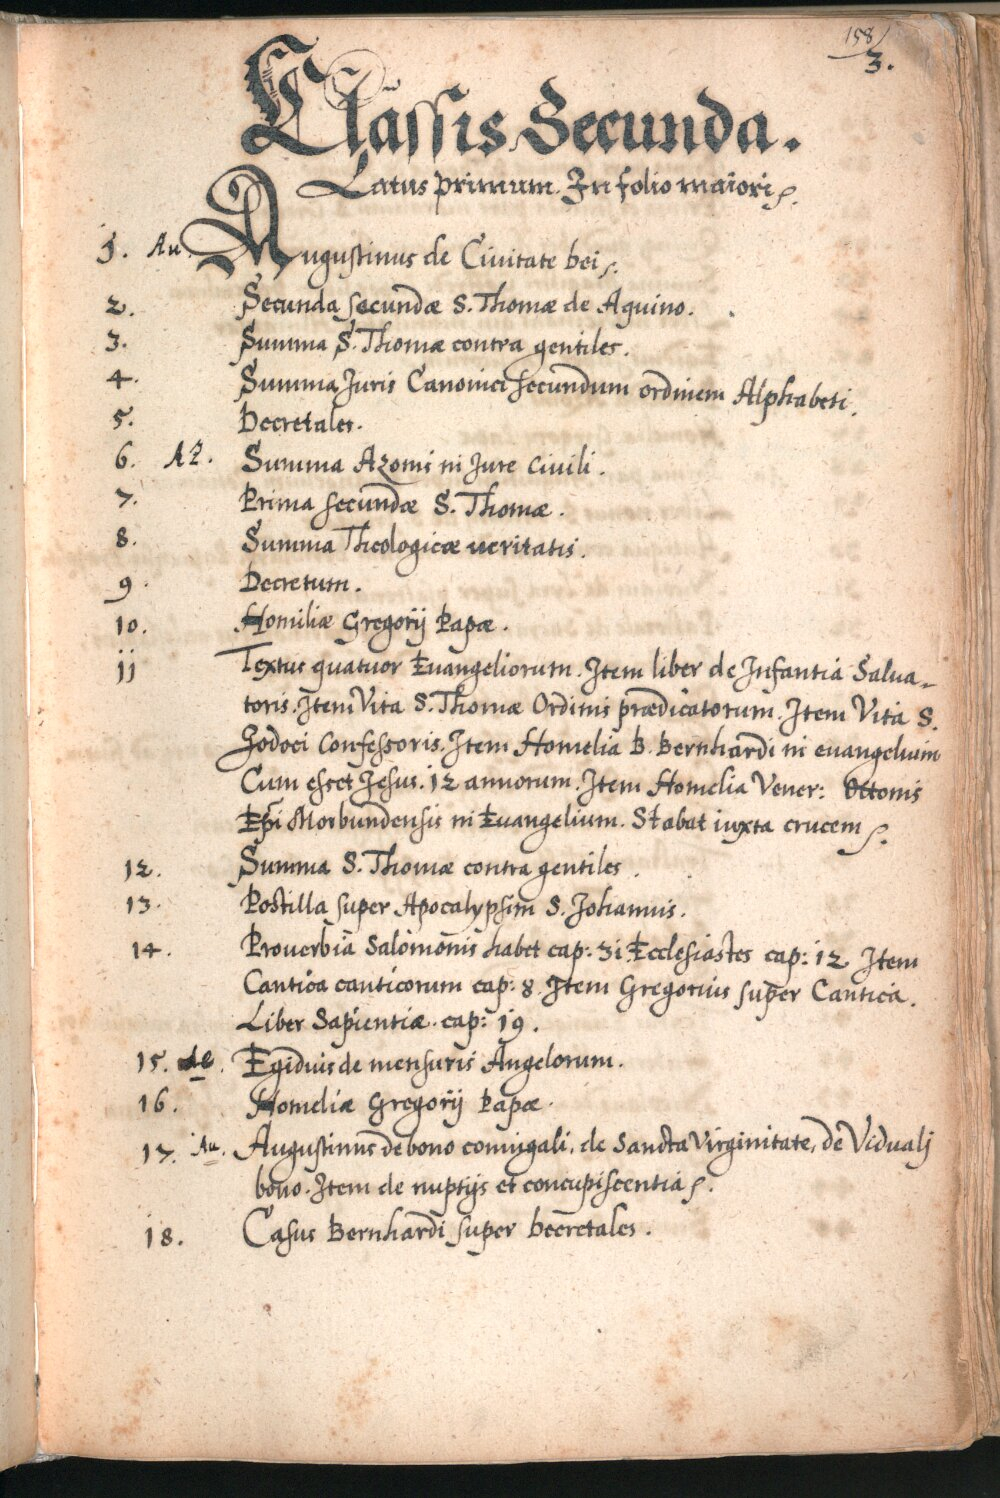 158
3.
Classis Secunda.
Latus primum. In folio maiori.
1. Au. Augustinus de Ciuitate Dei.
2. Secunda secundæ S. Thomæ de Aquino.
3. Summa S. Thomæ contra gentiles.
4. Summa Juris Canonici secundum ordinem Alphabeti.
5. Decretales.
6. AZ. Summa Azonis in Jure Ciuili.
7. Prima secundæ S. Thomæ.
8. Summa Theologicæ ueritatis.
9. Decretum.
10. Homiliæ Gregorij Papæ.
11 Textus quatuor Euangeliorum. Item liber de Infantia Salua-
toris. Item Vita S. Thomæ Ordinis prædicatorum. Item Vita S.
Jodoci Confessoris. Item Homelia B. Bernhardi in euangelium
Cum esset Jesus. 12 annorum. Item Homelia Vener: Ottonis
Epi Morbundensis in Euangelium. Stabat iuxta crucem.
12. Summa S. Thomæ contra gentiles.
13. Postilla super Apocalypsim S. Johannis.
14. Prouerbia Salomonis habet cap: 31 Ecclesiastes cap: 12. Item
Cantica canticorum cap: 8. Item Gregorius super Cantica.
Liber Sapientiæ. cap: 19.
15. Egidius de mensuris Angelorum.
16. Homeliæ Gregorij Papæ.
17. Au. Augustinus de bono coniugali, de Sancta Virginitate, de Viduali
bono. Item de nuptijs et concupiscentia.
18. Casus Bernhardi super Decretales.